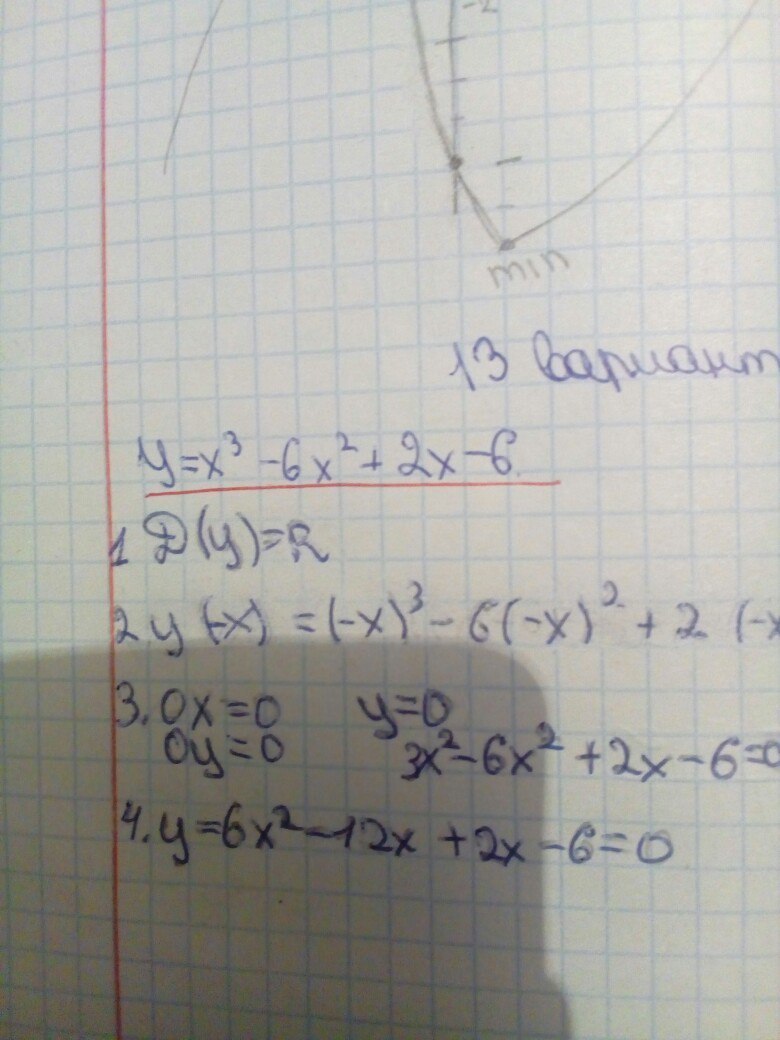 -2
min
13 вариант
y=x³-6x²+2x-6
1 D(y)=R
2 y(-x)=(-x)³-6(-x)²+2(-x
3. 0x=0 y=0
0y=0 3x²-6x²+2x-6=0
4. y=6x²-12x+2x-6=0